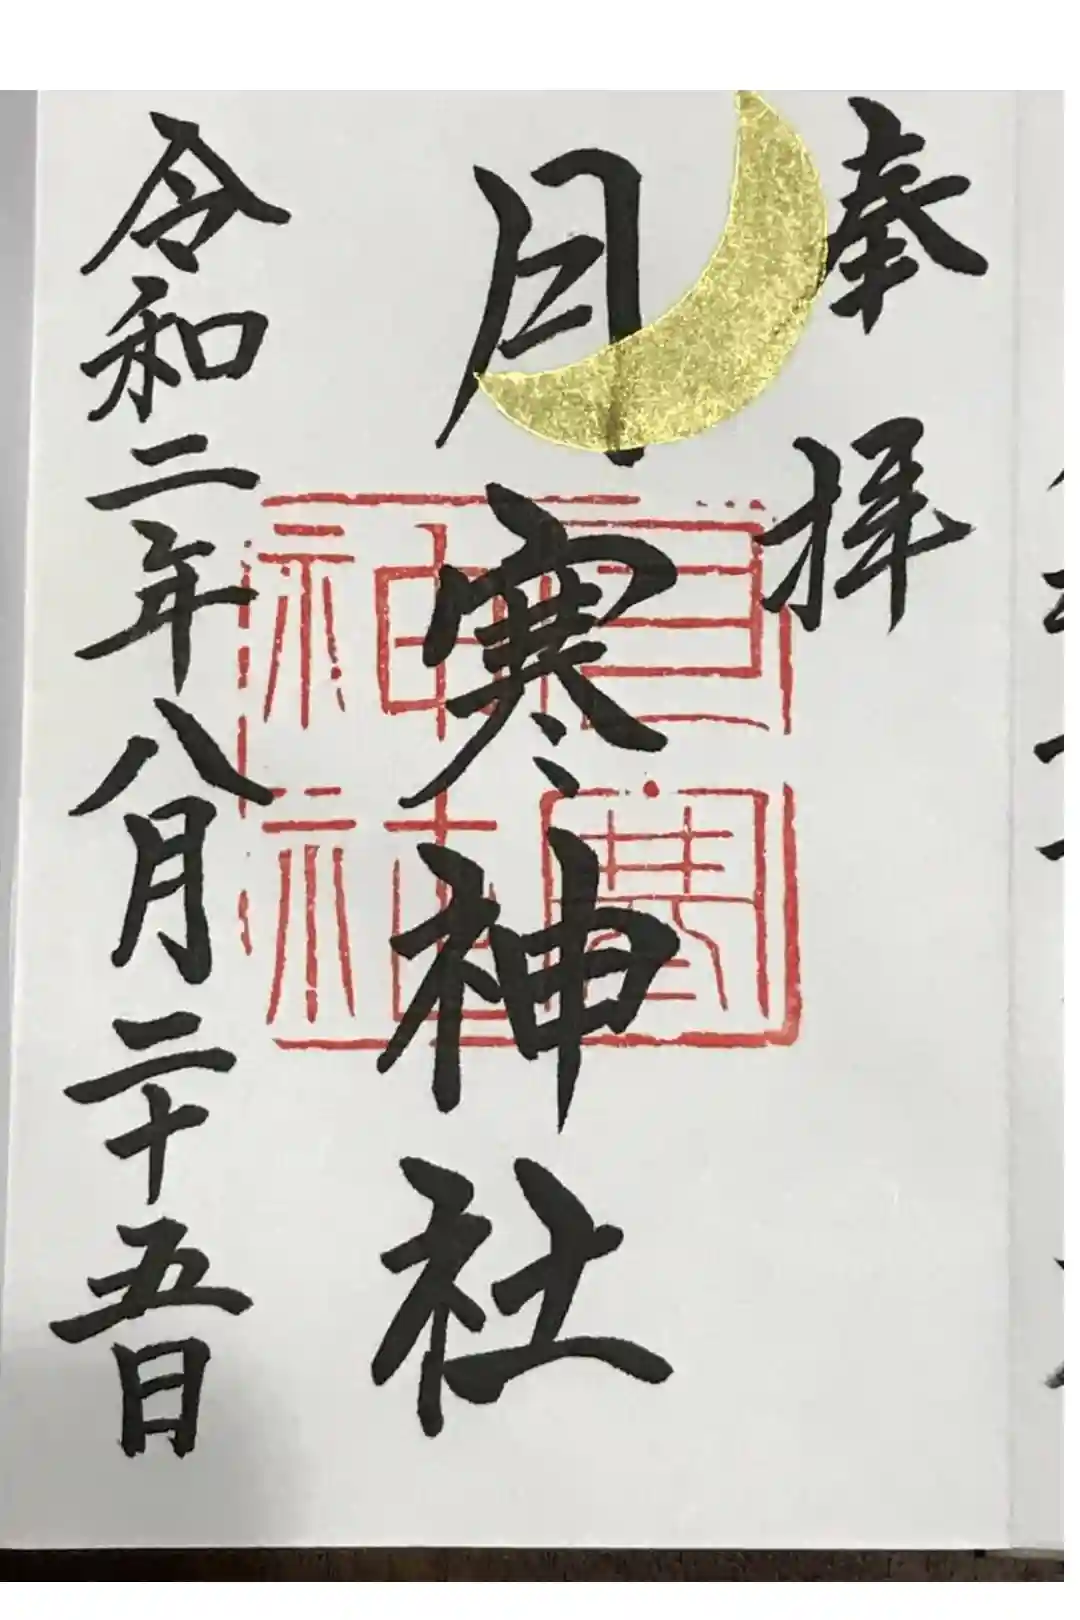 奉拝
月寒神社
令和二年八月二十五日
月寒
神社